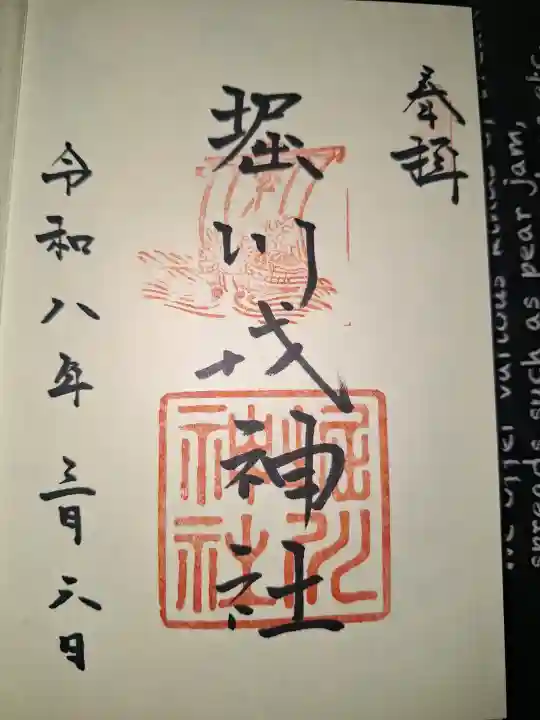 奉拝
堀川戎神社
令和八年 三月六日
堀川
神社
various kinds of
spreads such as pear jam,